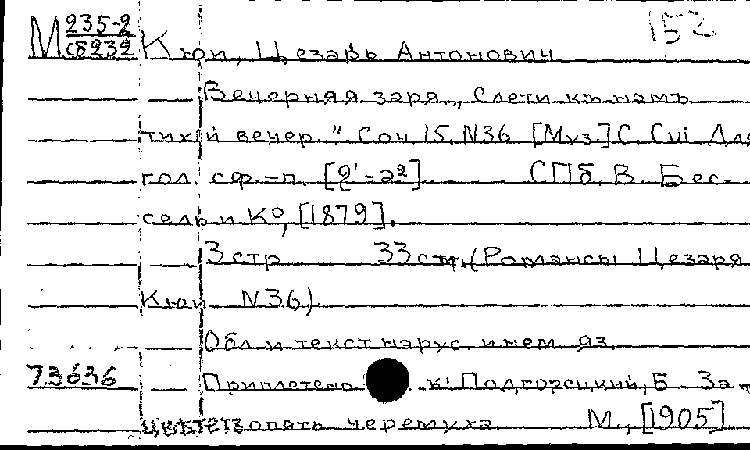 М 235-2 152
св232 Кюи, Цезарь Антонович
Вечерняя заря. „Слети къ намъ
тихий вечер." Соч 15, N36 [Муз] C. Cui Для
гол. с ф.-п. [e'-a²] СПб, В. Бес-
сель и К°, [1879].
3 стр 33 см. (Романсы Цезаря
Кюи N36)
Обл. и текст на рус. и нем. яз.
73636 Приплетено к: Подгорецкий, Б. За-
цветет опять черемуха М., [1905]